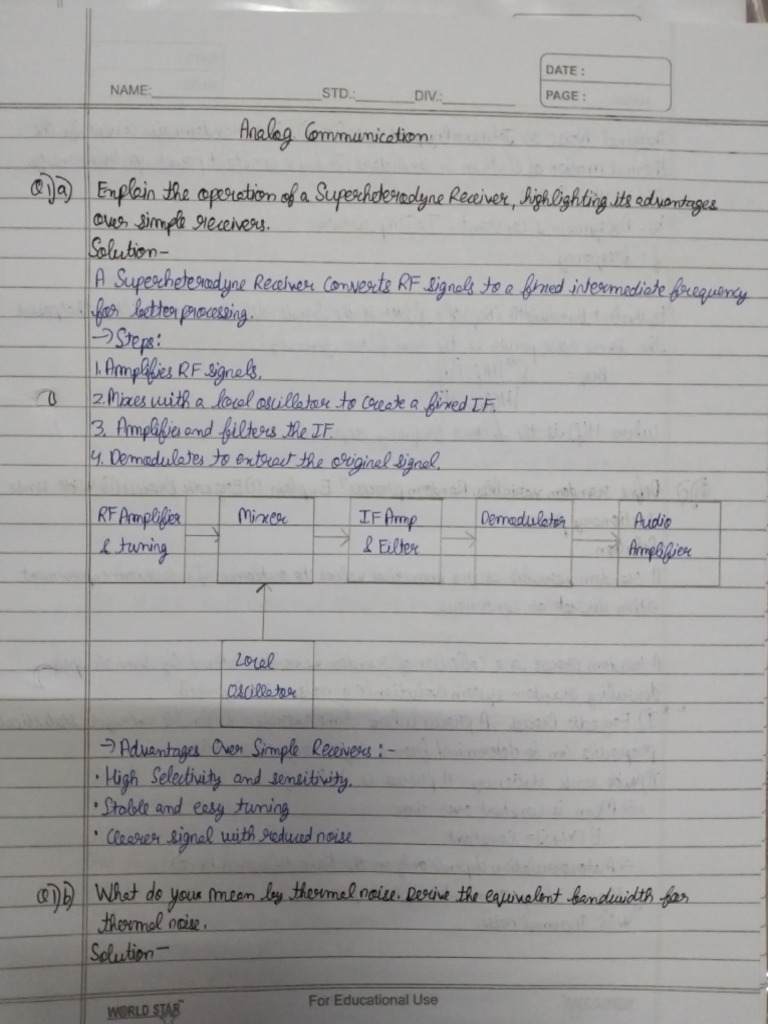 DATE :
NAME: STD.: DIV.: PAGE :
Analog Communication
Q1)a) Explain the operation of a Superheterodyne Receiver, highlighting its advantages
over simple receivers.
Solution-
A Superheterodyne Receiver converts RF signals to a fixed intermediate frequency
for better processing.
→ Steps:
1. Amplifies RF signals.
2. Mixes with a local oscillator to create a fixed IF.
3. Amplifies and filters the IF.
4. Demodulates to extract the original signal.
RF Amplifier
& tuning
Mixer
IF Amp
& Filter
Demodulator
Audio
Amplifier
Local
Oscillator
→ Advantages Over Simple Receivers :-
• High Selectivity and sensitivity.
• Stable and easy tuning
• Clearer signal with reduced noise
Q1)b) What do you mean by thermal noise. Derive the equivalent bandwidth for
thermal noise.
Solution-
WORLD STAR For Educational Use